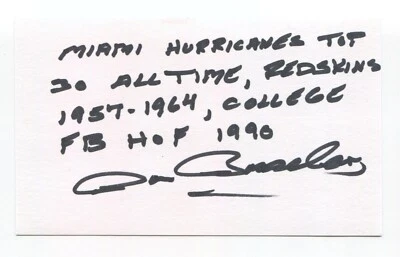 MIAMI HURRICANES TOP
30 ALL TIME, REDSKINS
1957-1964, COLLEGE
FB HOF 1990
Don Bosseler